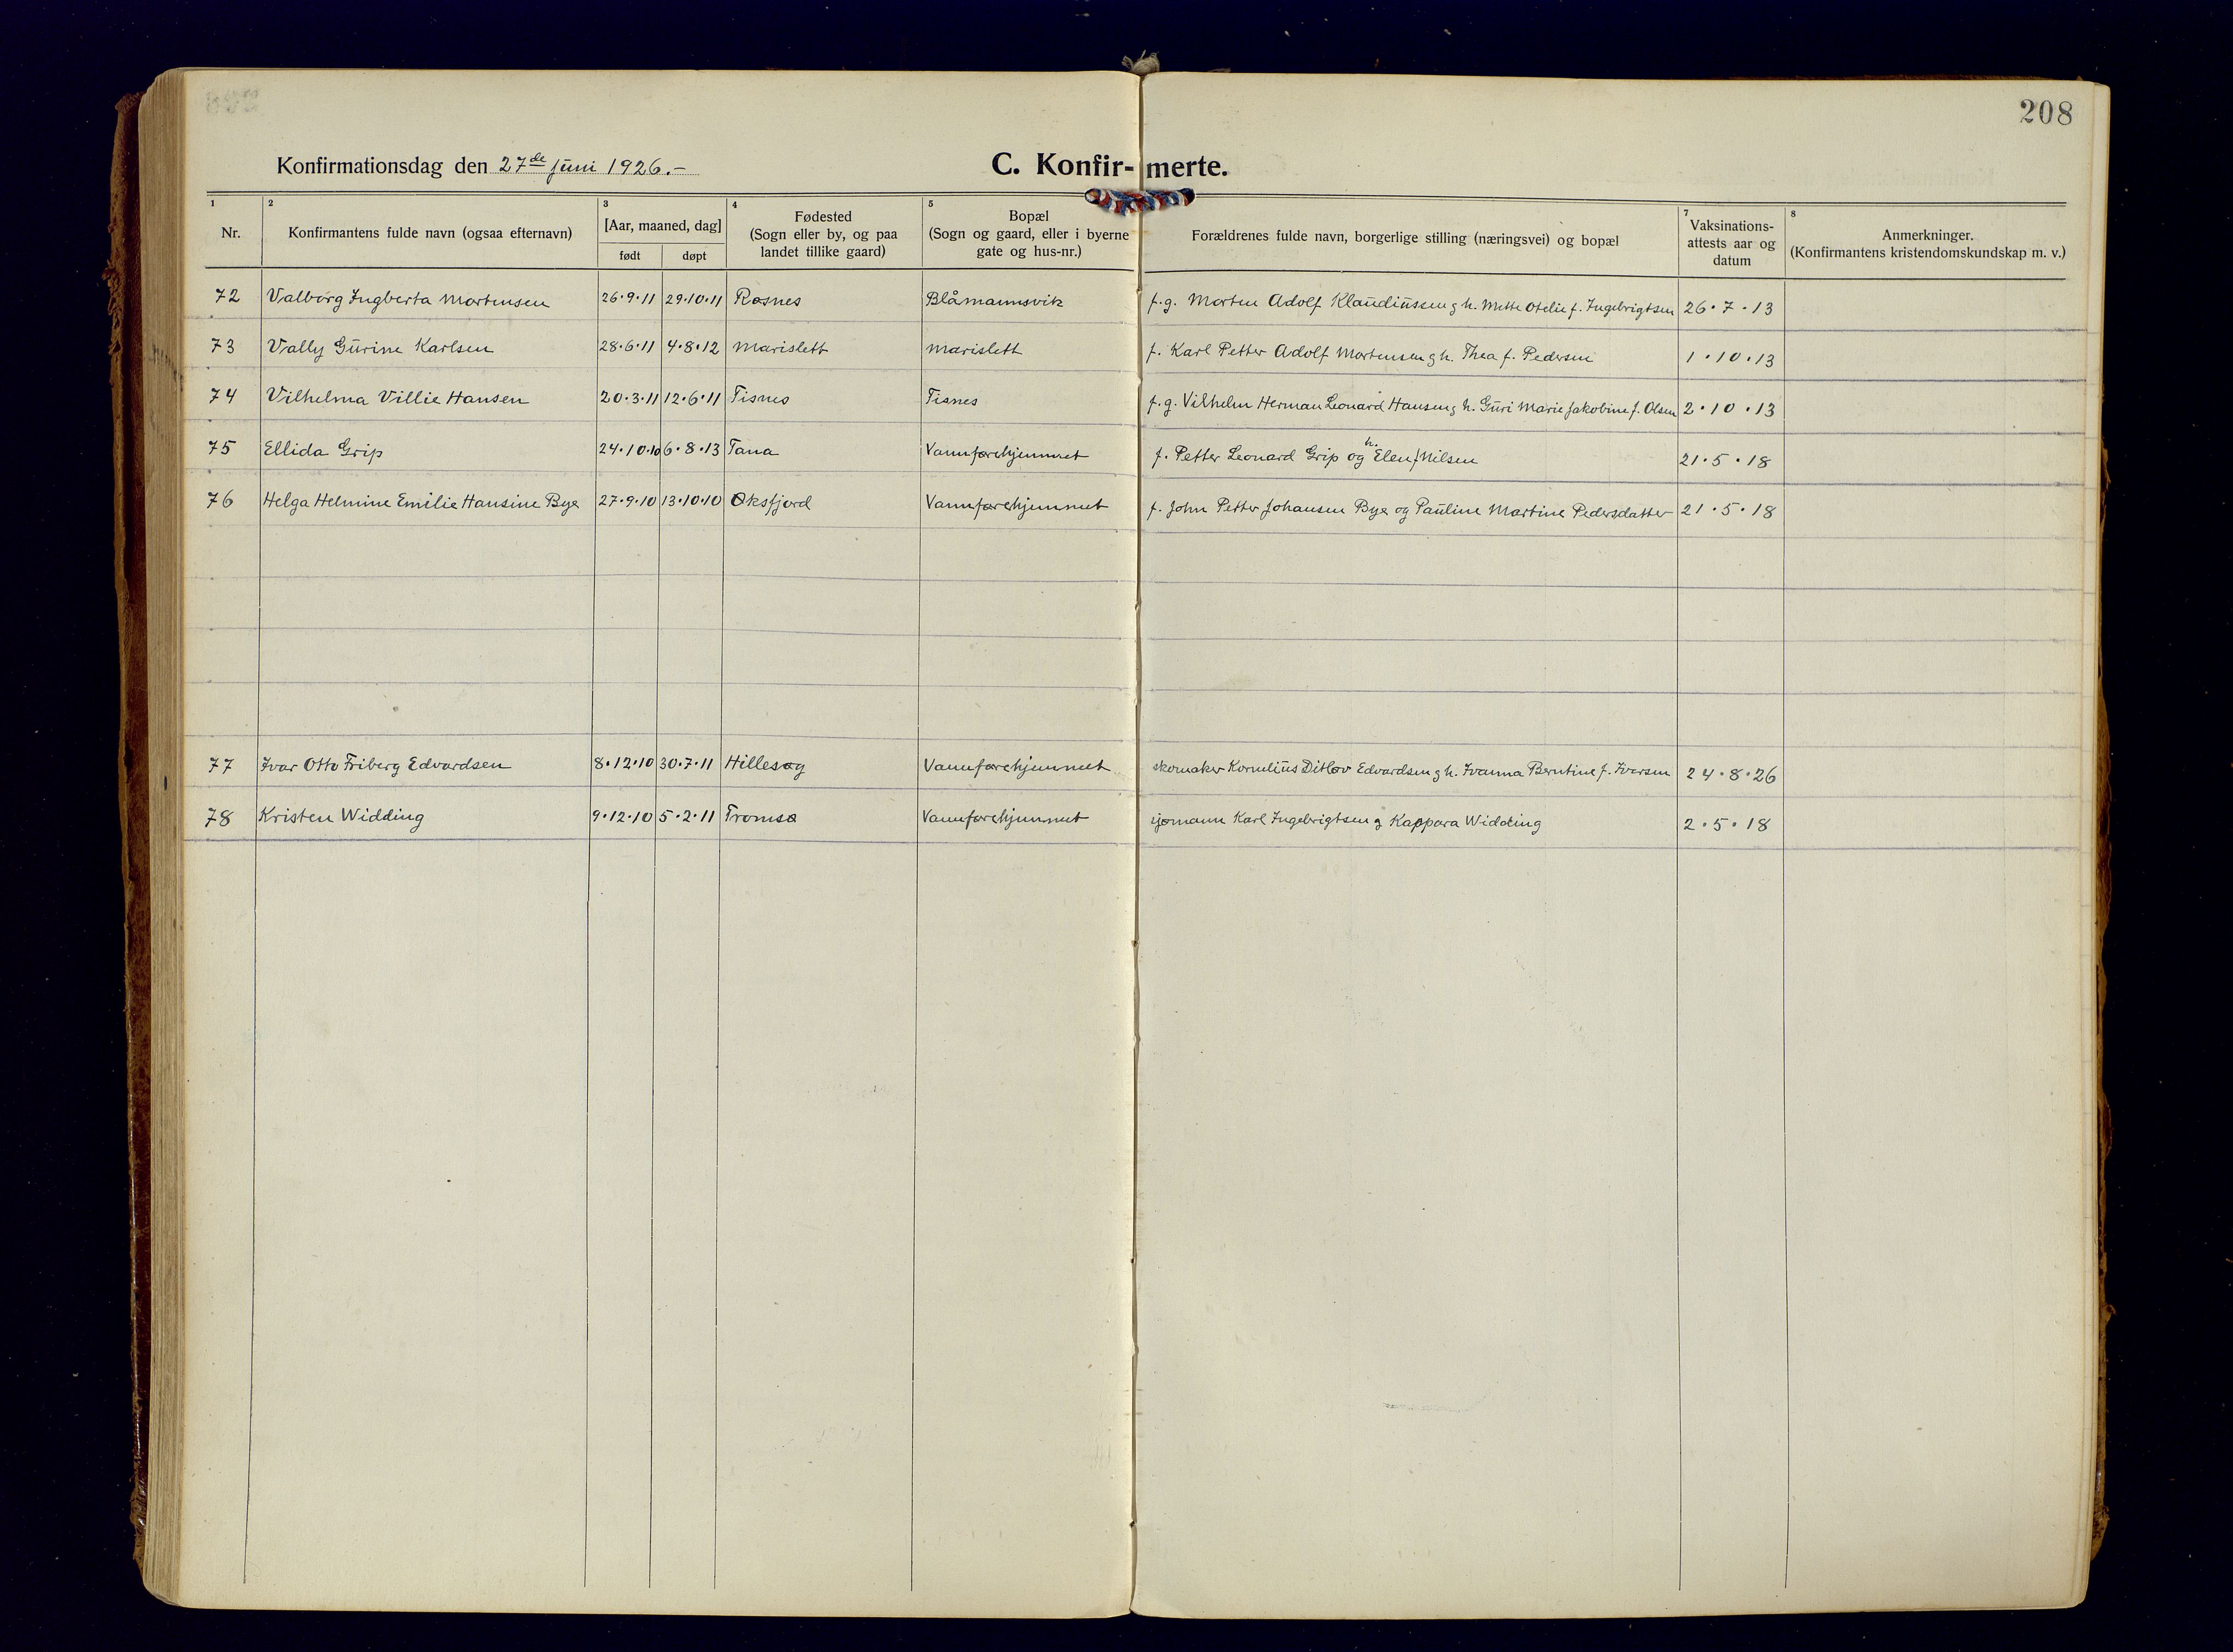 208
Konfirmationsdag den 27de juni 1926.-
C. Konfir-merte.
1 2 3 4 5 7 8
Nr. Konfirmantens fulde navn (ogsaa efternavn) [Aar, maaned, dag] født døpt Fødested (Sogn eller by, og paa landet tillike gaard) Bopæl (Sogn og gaard, eller i byerne gate og hus-nr.) Forældrenes fulde navn, borgerlige stilling (næringsvei) og bopæl Vaksinations-attests aar og datum Anmerkninger. (Konfirmantens kristendomskundskap m. v.)
72 Valborg Ingberta Mortensen 26.9.11 29.10.11 Røsnes Blåmannsvik f.g. Morten Adolf Klaudiussen g h. Mette Otelie f. Ingebrigtsen 26.7.13
73 Vally Gurine Karlsen 28.6.11 4.8.12 Marislett Marislett f. Karl Petter Adolf Mortensen g h. Thea f. Pedersen 1.10.13
74 Vilhelma Villie Hansen 20.3.11 12.6.11 Tisnes Tisnes f.g. Vilhelm Herman Leonard Hansen g h. Guri Marie Jakobine f. Olsen 2.10.13
75 Ellida Grip 24.10.10 6.8.13 Tana Vanførehjemmet f. Petter Leonard Grip og h. Elen f Nilsen 21.5.18
76 Helga Helmine Emilie Hansine Bye 27.9.10 13.10.10 Øksfjord Vanførehjemmet f. John Petter Johansen Bye og Pauline Martine Pedersdatter 21.5.18
77 Ivar Otto Friberg Edvardsen 8.12.10 30.7.11 Hillesøy Vanførehjemmet skomaker Kornelius Ditlev Edvardsen g h. Ivanna Berntine f. Iversen 24.8.26
78 Kristen Widding 9.12.10 5.2.11 Tromsø Vanførehjemmet sjømann Karl Ingebrigtsen g Kaspara Widding 2.5.18